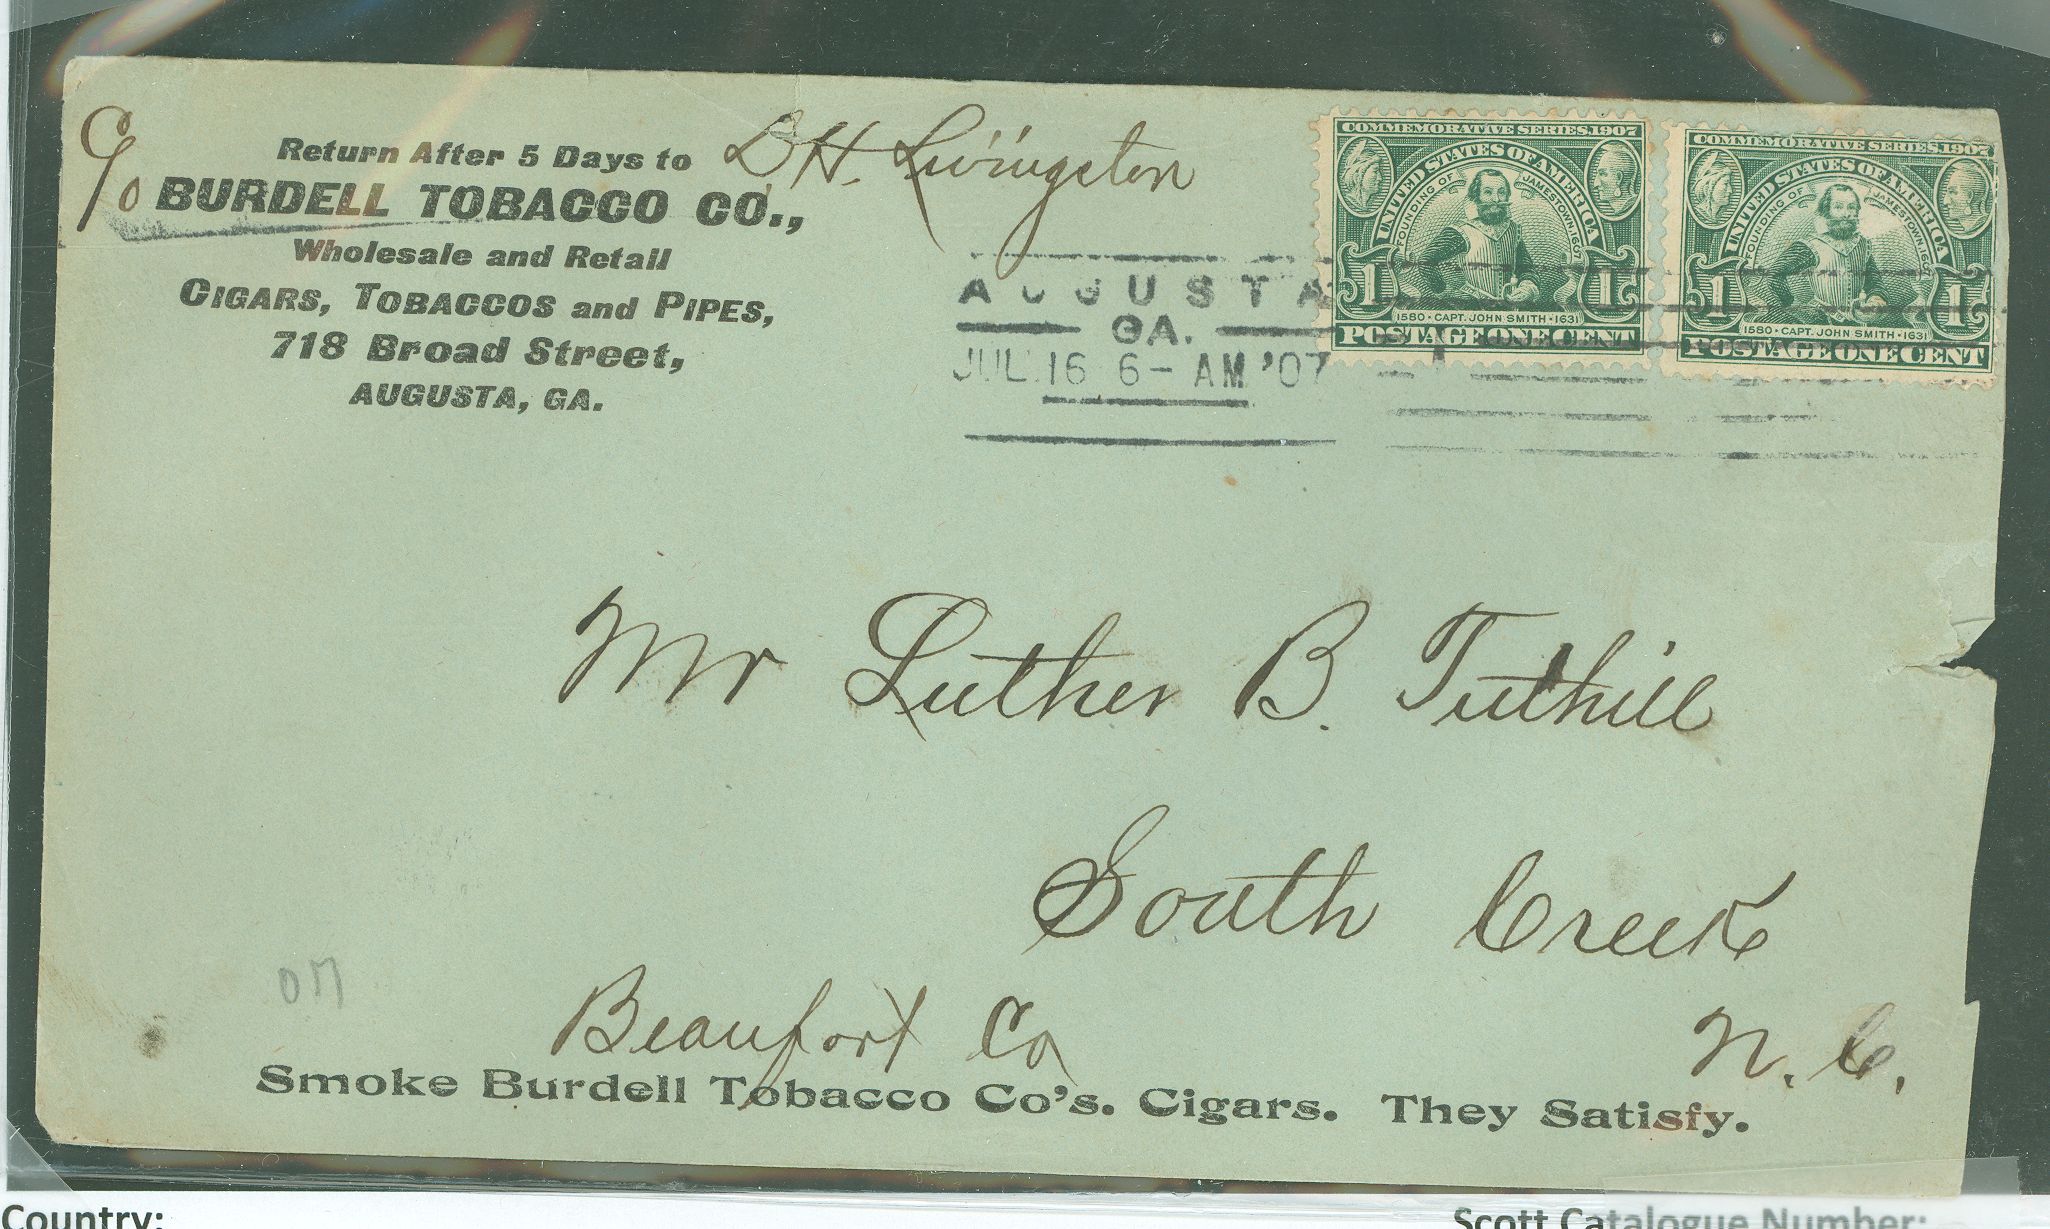 C/o
Return After 5 Days to D H. Livingston
BURDELL TOBACCO CO.,
Wholesale and Retail
CIGARS, TOBACCOS and PIPES,
718 Broad Street,
AUGUSTA, GA.
AUGUSTA
GA.
JUL 16 6-AM '07
COMMEMORATIVE SERIES 1907
UNITED STATES OF AMERICA
FOUNDING OF JAMESTOWN 1607
1 1
1580 · CAPT. JOHN SMITH · 1631
POSTAGE ONE CENT
COMMEMORATIVE SERIES 1907
UNITED STATES OF AMERICA
FOUNDING OF JAMESTOWN 1607
1 1
1580 · CAPT. JOHN SMITH · 1631
POSTAGE ONE CENT
Mr Luther B. Tuthill
South Creek
Beaufort Co N. C.
Smoke Burdell Tobacco Co's. Cigars. They Satisfy.
Country:
Scott Catalogue Number: